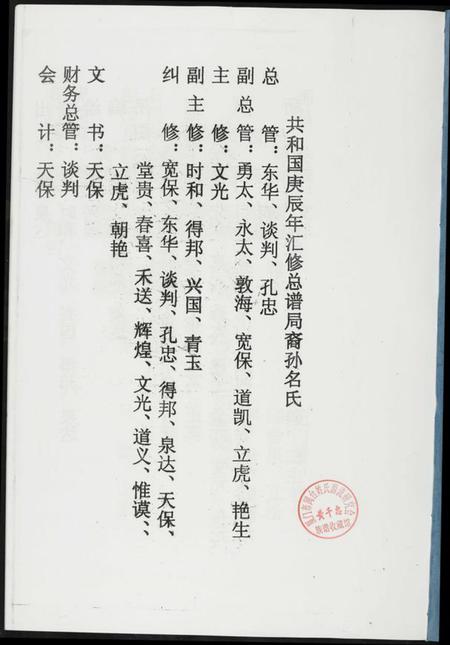 共和国庚辰年汇修总谱局裔孙名氏
总管：东华、谈判、孔忠
副总管：勇太、永太、敦海、宽保、道凯、立虎、艳生
主修：文光
副主修：时和、得邦、兴国、青玉
纠修：宽保、东华、谈判、孔忠、得邦、泉达、天保、
堂贵、春喜、禾送、辉煌、文光、道义、惟谟、、
立虎、朝艳
文书：天保
财务总管：谈判
会计：天保
族谱收藏馆